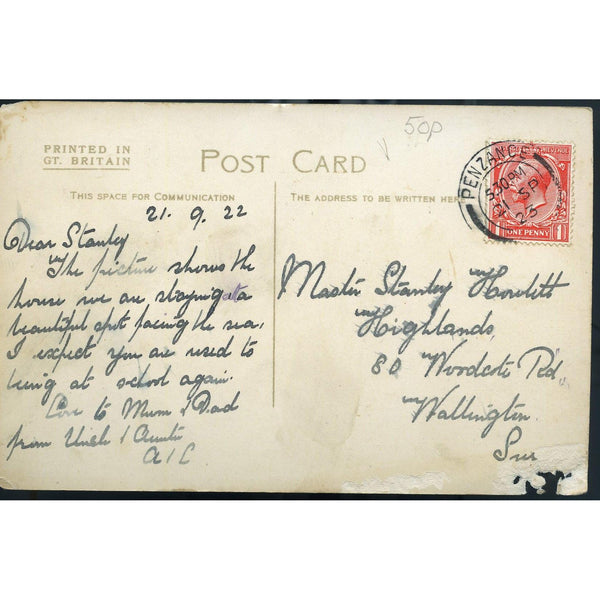 50p
PRINTED IN
GT. BRITAIN
POST CARD
THIS SPACE FOR COMMUNICATION
THE ADDRESS TO BE WRITTEN HERE
PENZANCE
5.30 PM
SP
23
POSTAGE REVENUE
1 ONE PENNY 1
21. 9. 22
Dear Stanley
The picture shows the
house we are staying at a
beautiful spot facing the sea.
I expect you are used to
being at school again.
Love to Mum & Dad
from Uncle & Auntie
Master Stanley Howlett
Highlands,
80 Woodcote Rd
Wallington.
Sur